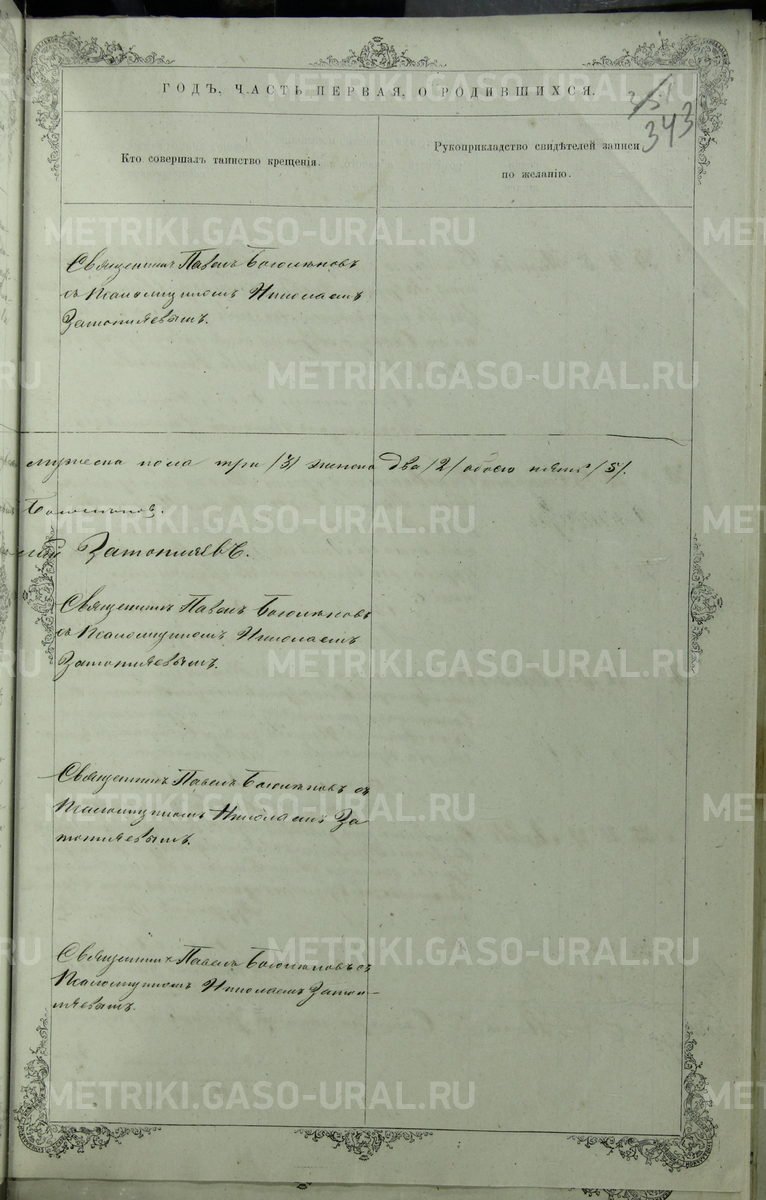 ГОДЪ, ЧАСТЬ ПЕРВАЯ, О РОДИВШИХСЯ.
351
343
Кто совершалъ таинство крещенія.
Рукоприкладство свидѣтелей записи
по желанію.
Священникъ Павелъ
съ Псаломщикомъ Николаемъ
Затопляевымъ.
мужеска пола три /3/ женска два /2/ обоего пять /5/.
Затопляевъ.
Священникъ Павелъ
съ Псаломщикомъ Николаемъ
Затопляевымъ.
Священникъ Павелъ съ
Псаломщикомъ Николаемъ За
топляевымъ.
Священникъ Павелъ съ
Псаломщикомъ Николаемъ Затоп-
ляевымъ.
METRIKI.GASO-URAL.RU